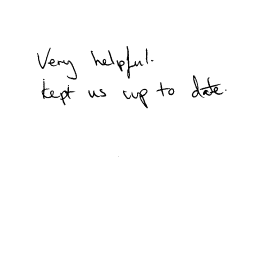 Very helpful.
kept us up to date.